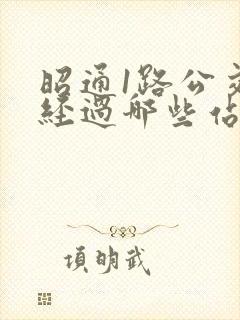 昭通1路公
經過哪些
項明武